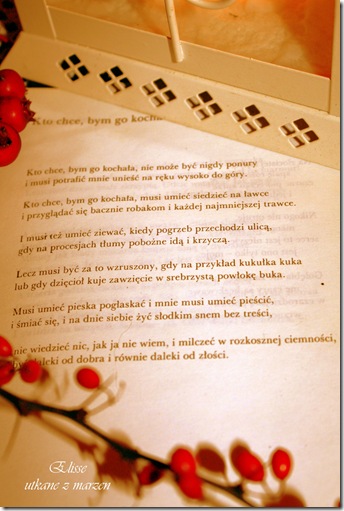 Kto chce, bym go kocha
Kto chce, bym go kochała, nie może być nigdy ponury
i musi potrafić mnie unieść na ręku wysoko do góry.
Kto chce, bym go kochała, musi umieć siedzieć na ławce
i przyglądać się bacznie robakom i każdej najmniejszej trawce.
I musi też umieć ziewać, kiedy pogrzeb przechodzi ulicą,
gdy na procesjach tłumy pobożne idą i krzyczą.
Lecz musi być za to wzruszony, gdy na przykład kukułka kuka
lub gdy dzięcioł kuje zawzięcie w srebrzystą powłokę buka.
Musi umieć pieska pogłaskać i mnie musi umieć pieścić,
i śmiać się, i na dnie siebie żyć słodkim snem bez treści,
nie wiedzieć nic, jak ja nie wiem, i milczeć w rozkosznej ciemności,
daleki od dobra i równie daleki od złości.
Elisse
utkane z marzen